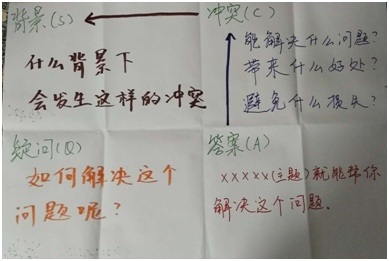 背景(S)
什么背景下
会发生这样的冲突
冲突(C)
能解决什么问题?
带来什么好处?
避免什么损失?
疑问(Q)
如何解决这个
问题呢?
答案(A)
×××××(主题)就能帮你
解决这个问题.